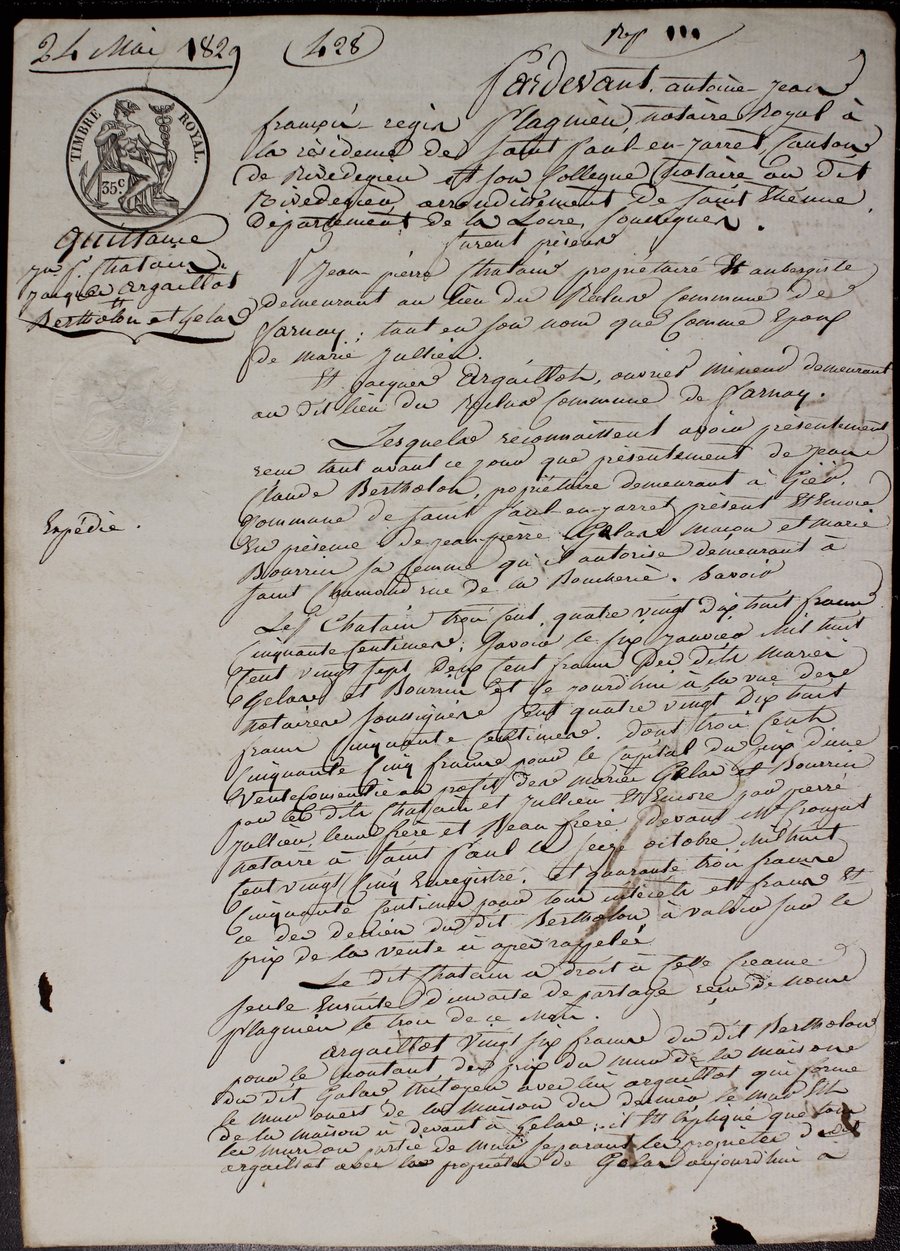 24 Mai 1829
428
Rep
TIMBRE ROYAL.
35 c
Quittance
Jn P. Chatain
Jacques Argaillot
Bertholon et Gelas
Expédié.
Pardevant. antoine-jean
françois-regis Plagnieu notaire Royal à
la résidence de Saint Paul-en-jarret Canton
de Rivedegier et son Collegue Notaire au dit
Rivedegier, arrondissement de Saint Etienne,
Département de la Loire, soussignés.
furent présens
Sr Jean-pierre Chatain propriétaire et aubergiste
demeurant au lieu du Reclus Commune de
farnay; tant en son nom que Comme Epoux
de marie jullien.
Et jacques Argaillot, ouvrier mineur demeurant
au dit lieu du Reclus Commune de farnay.
Lesquels reconnaissent avoir présentement
recu tant avant ce jour que présentement de jean
Claude Bertholon, propriétaire demeurant à Gier,
Commune de saint paul-en-jarret présent Et Encore
En présence de jean-pierre Gelas maçon et marie
Bourrin sa femme qu'il autorise demeurant à
saint Chamond rue de la Boucherie. Savoir
Le Sr Chatain trois cent quatre vingt dix huit francs
Cinquante Centimes; Savoir le six janvier mil huit
Cent vingt sept Deux Cent francs Des dits mariés
Gelas et Bourrin et ce jourd'hui à la vue des
notaires soussignés Cent quatre vingt Dix huit
francs Cinquante Centimes. dont trois Cents
Cinquante Cinq francs pour le Capital du prix d'une
Vente Consentie au profit des mariés Gelas et Bourrin
par les dits Chatain et jullien Et Encore par pierre
jullien leur frère et Beau frère devant Me
notaire à saint paul le seize octobre mil huit
Cent vingt Cinq Enregistré. et quarante trois francs
Cinquante Centimes pour tous intérêts et fraux Et
ce des deniers du dit Bertholon à valoir sur le
prix de la vente ci après rappelée
Le dit Chatain a droit à Cette Creance
seule Ensuite d'un acte de partage reçu de nome
Plagnieu le trois de ce mois.
Argaillot vingt six francs du dit Bertholon
pour le montant du prix du mur de la maison
du dit Gelas mitoyen avec lui argaillot qui forme
le mur ouest de la maison du dernier le mur Est
de la maison ci devant à Gelas; il Est Expliqué que tous
les murs ou partie de murs separant les propriétés dudit
argaillot avec les propriétés de Gelas aujourd'hui à